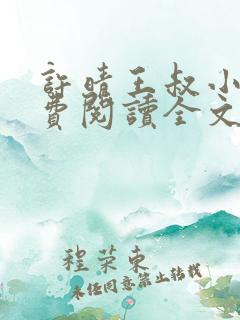 許晴王叔小
費閱讀全文
程荣東
未经同意禁止转载